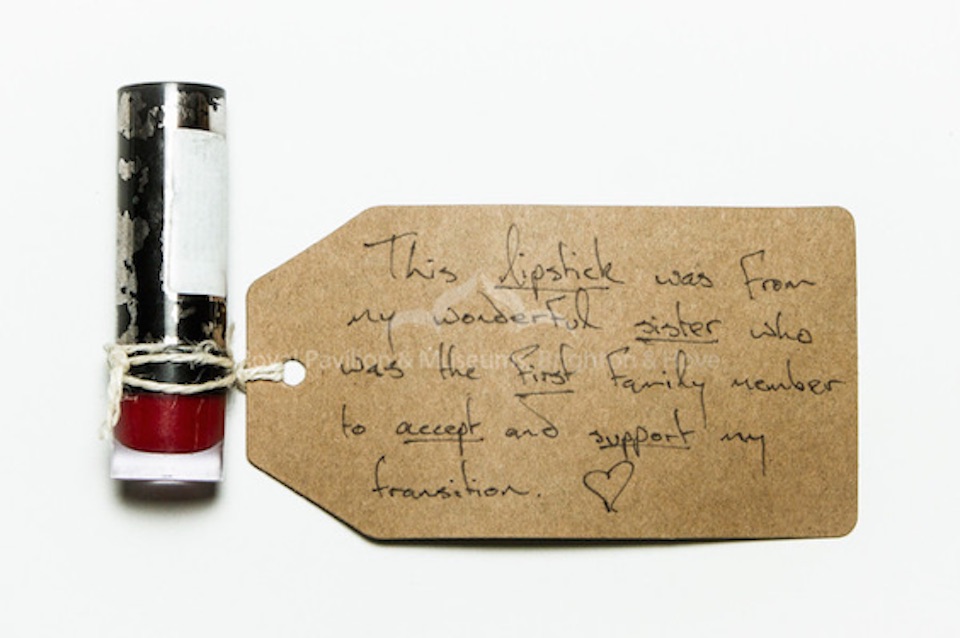 This lipstick was from
my wonderful sister who
was the first family member
to accept and support my
transition. ♡
Royal Pavilion & Museums, Brighton & Hove